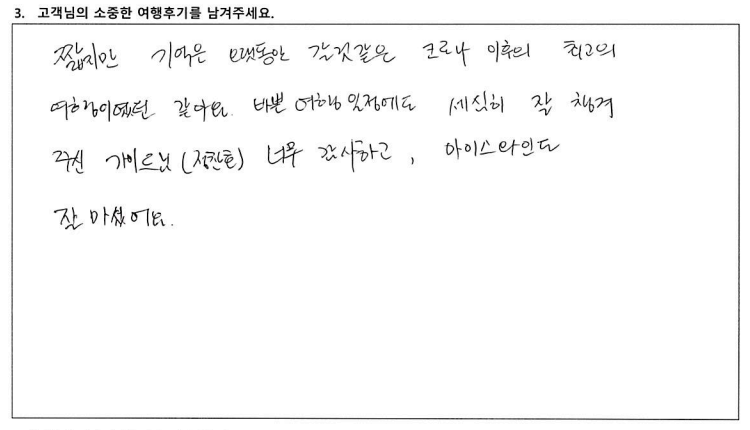 3. 고객님의 소중한 여행후기를 남겨주세요.
짧지만 기억은 오랫동안 갈것같은 코로나 이후의 최고의
여행이였던 같아요. 바쁜 여행 일정에도 세심히 잘 챙겨
주신 가이드님 (정찬호) 너무 감사하고, 아이스와인도
잘 마셨어요.